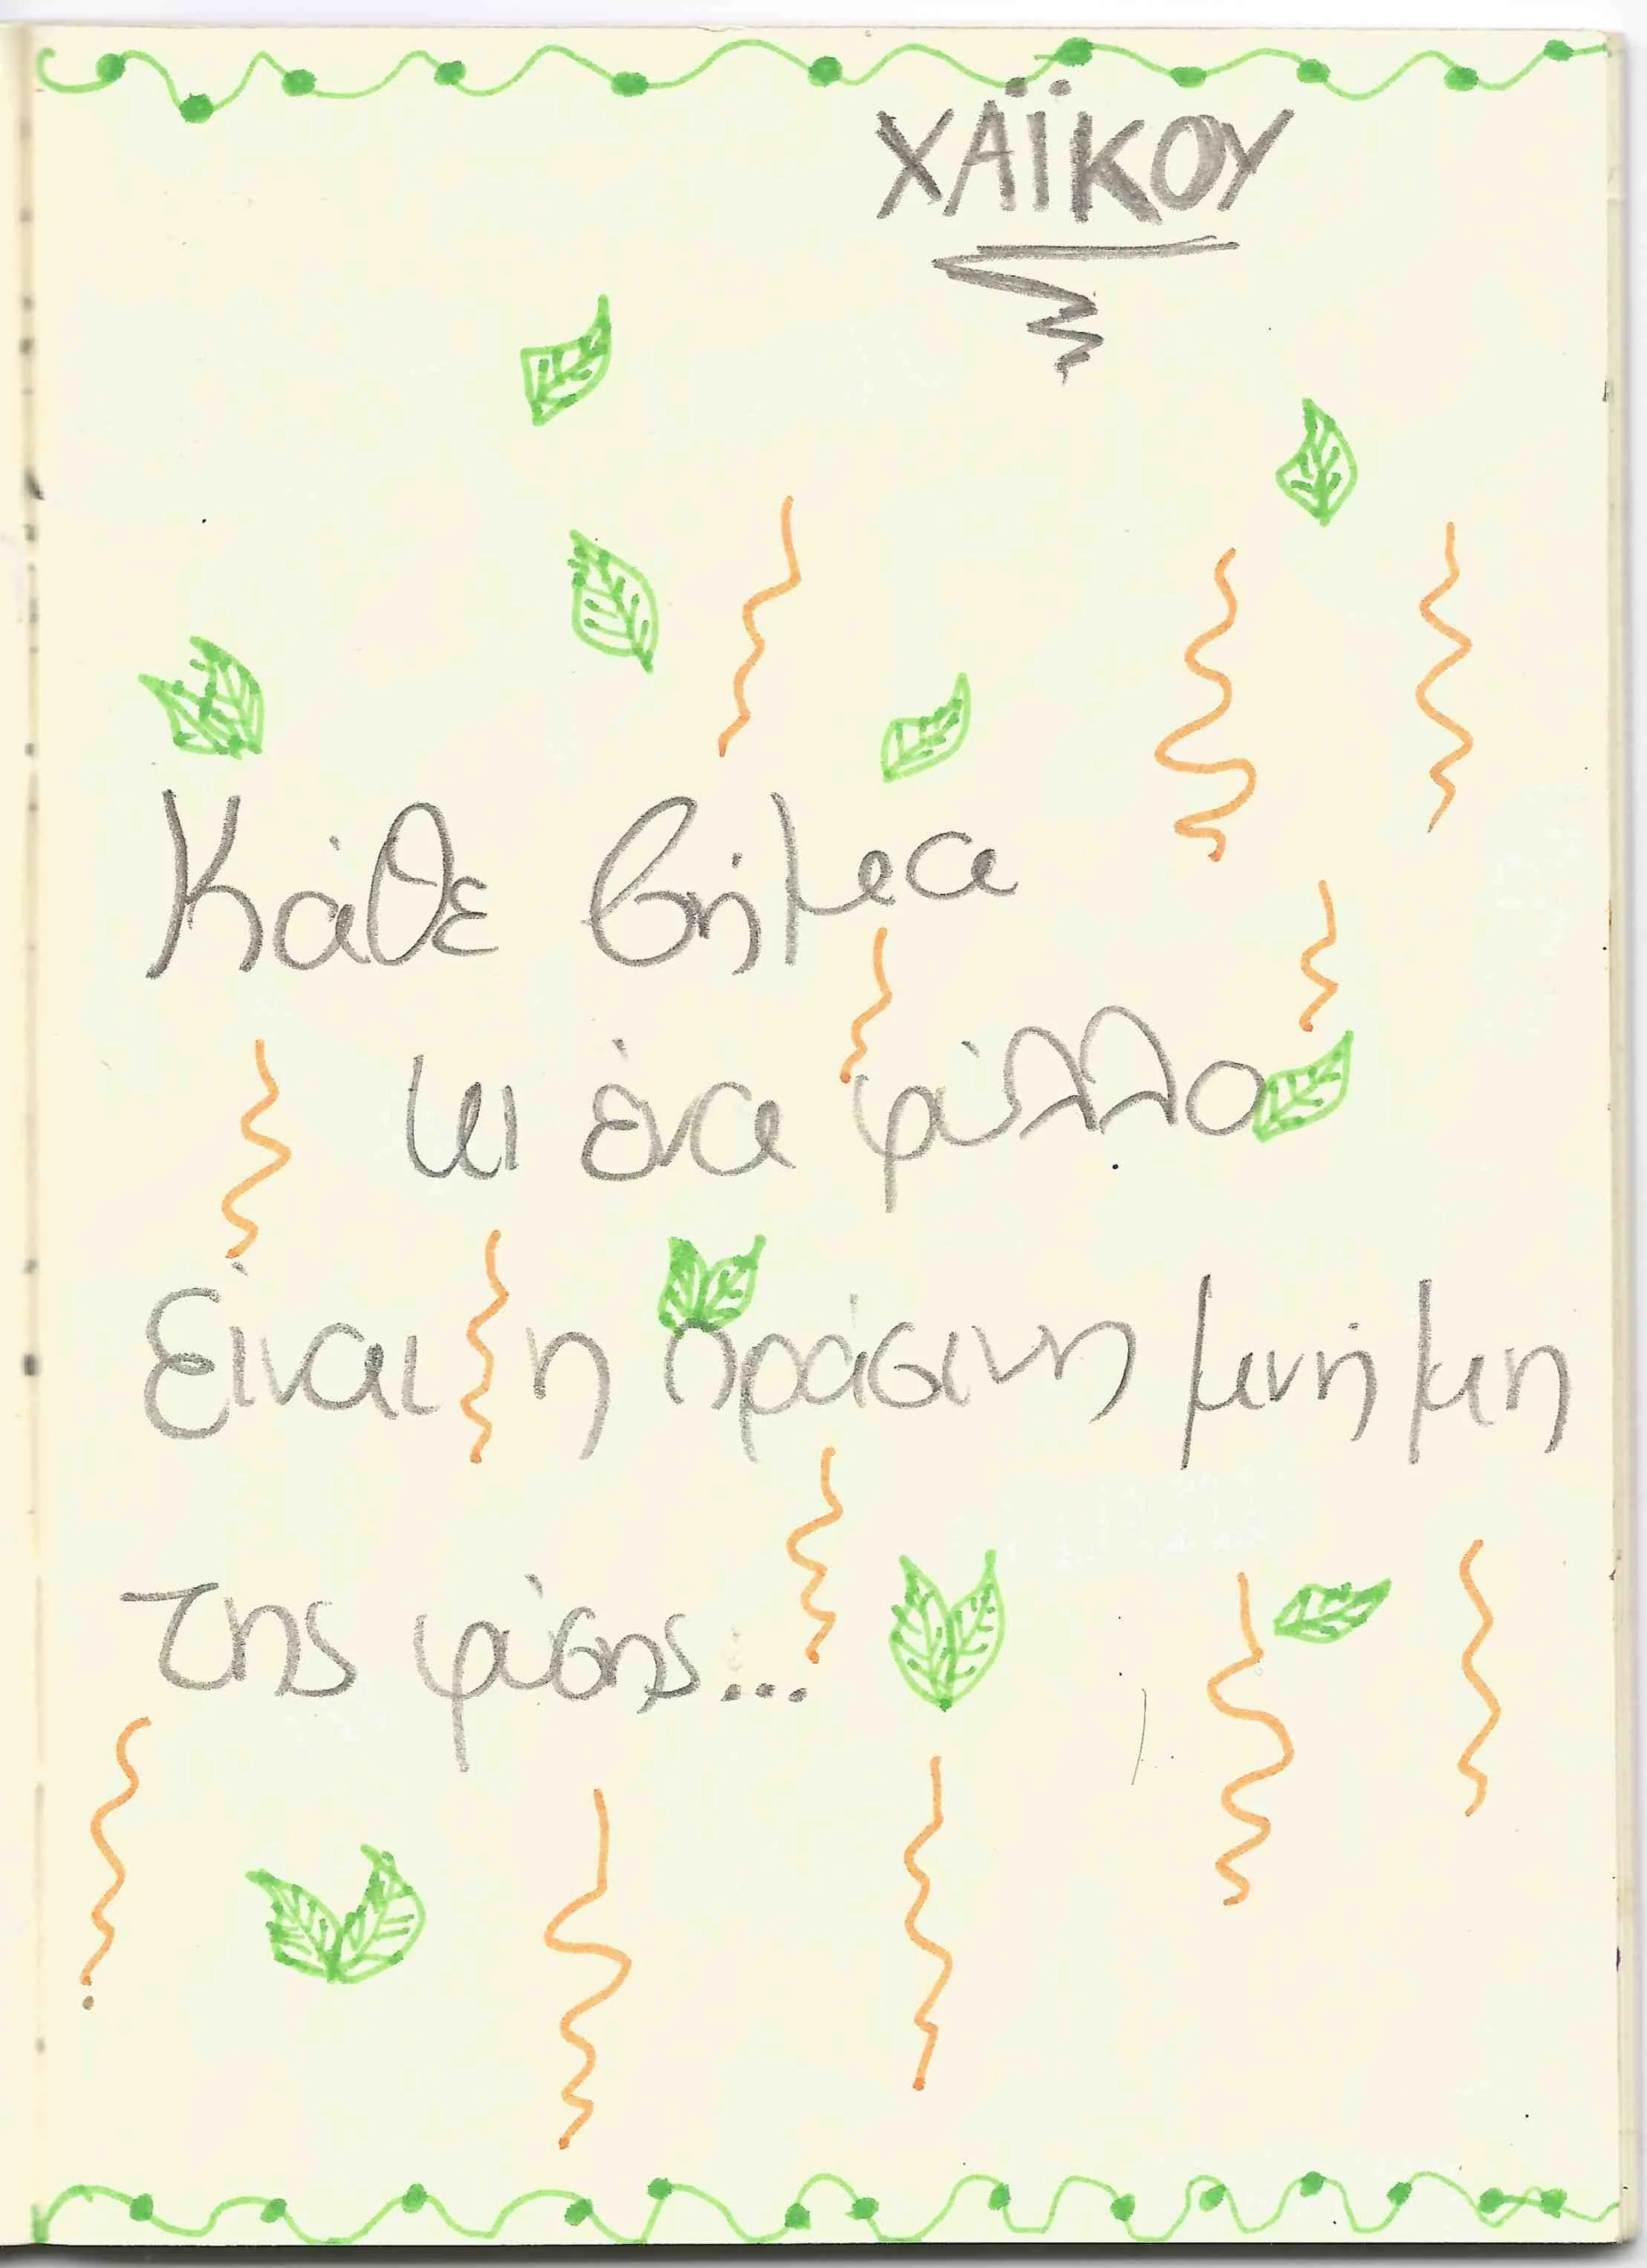 ΧΑΪΚΟΥ
Κάθε βήμα
κι ένα φύλλο
Είναι η πράσινη μνήμη
της φύσης...